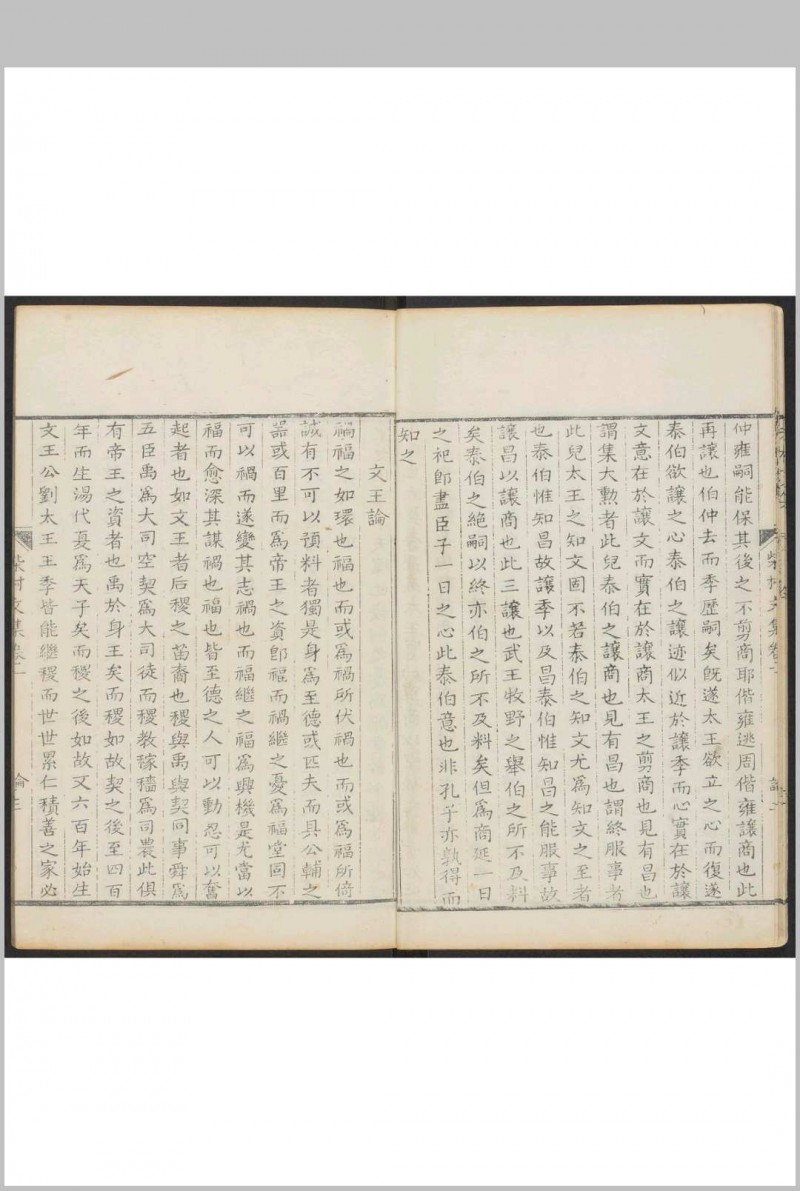 仲雍嗣能保其後之不剪商耶偕雍逃周偕雍讓商也此
再讓也伯仲去而季歷嗣矣旣遂太王欲立之心而復遂
泰伯欲讓之心泰伯之讓迹似近於讓季而心實在於讓
文意在於讓文而實在於讓商太王之剪商也見有昌也
謂集大勲者此兒泰伯之讓商也見有昌也謂終服事者
此兒太王之知文固不若泰伯之知文尤爲知文之至者
也泰伯惟知昌故讓季以及昌泰伯惟知昌之能服事故
讓昌以讓商也此三讓也武王牧野之舉伯之所不及料
矣泰伯之絕嗣以終亦伯之所不及料矣但爲商延一日
之祀卽盡臣子一日之心此泰伯意也非孔子亦孰得而
知之
文王論
禍福之如環也福也而或爲禍所伏禍也而或爲福所倚
誠有不可以預料者獨是身爲至德或匹夫而具公輔之
器或百里而爲帝王之資卽福而禍繼之憂爲福堂固不
可以禍而遂變其志禍也而福繼之福爲興機是尤當以
福而愈深其謀禍也福也皆至德之人可以動忍可以奮
起者也如文王者后稷之苗裔也稷與禹與契同事舜爲
五臣禹爲大司空契爲大司徒而稷教稼穡爲司農此俱
有帝王之資者也禹於身王矣而稷如故契之後至四百
年而生湯代夏爲天子矣而稷之後如故又六百年始生
文王公劉太王王季皆能繼稷而世世累仁積善之家必
柴村文集卷一
論三